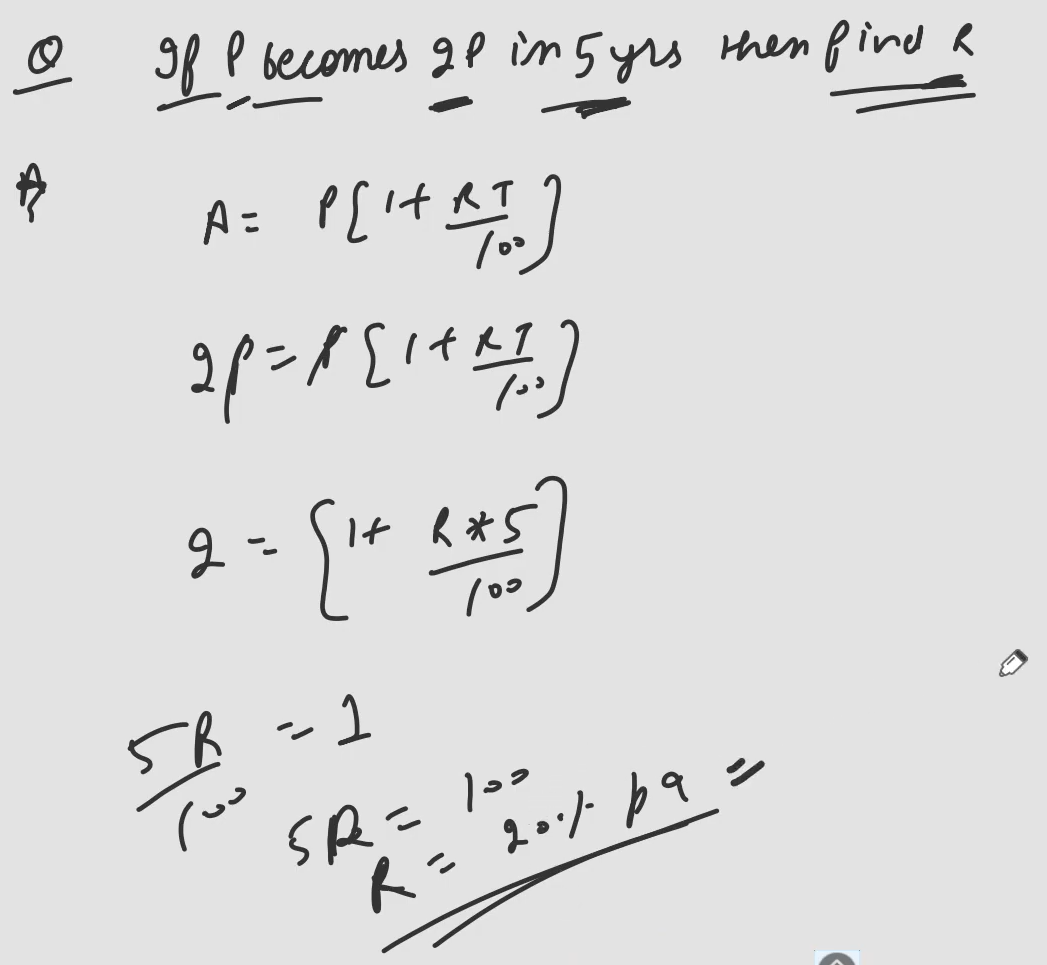 Q If P becomes 2P in 5 yrs then find R
A
A = P[1+ RT/100]
2P = P[1+ RT/100]
2 = [1+ R*5/100]
5R/100 = 1
5R = 100
R = 20% pa =